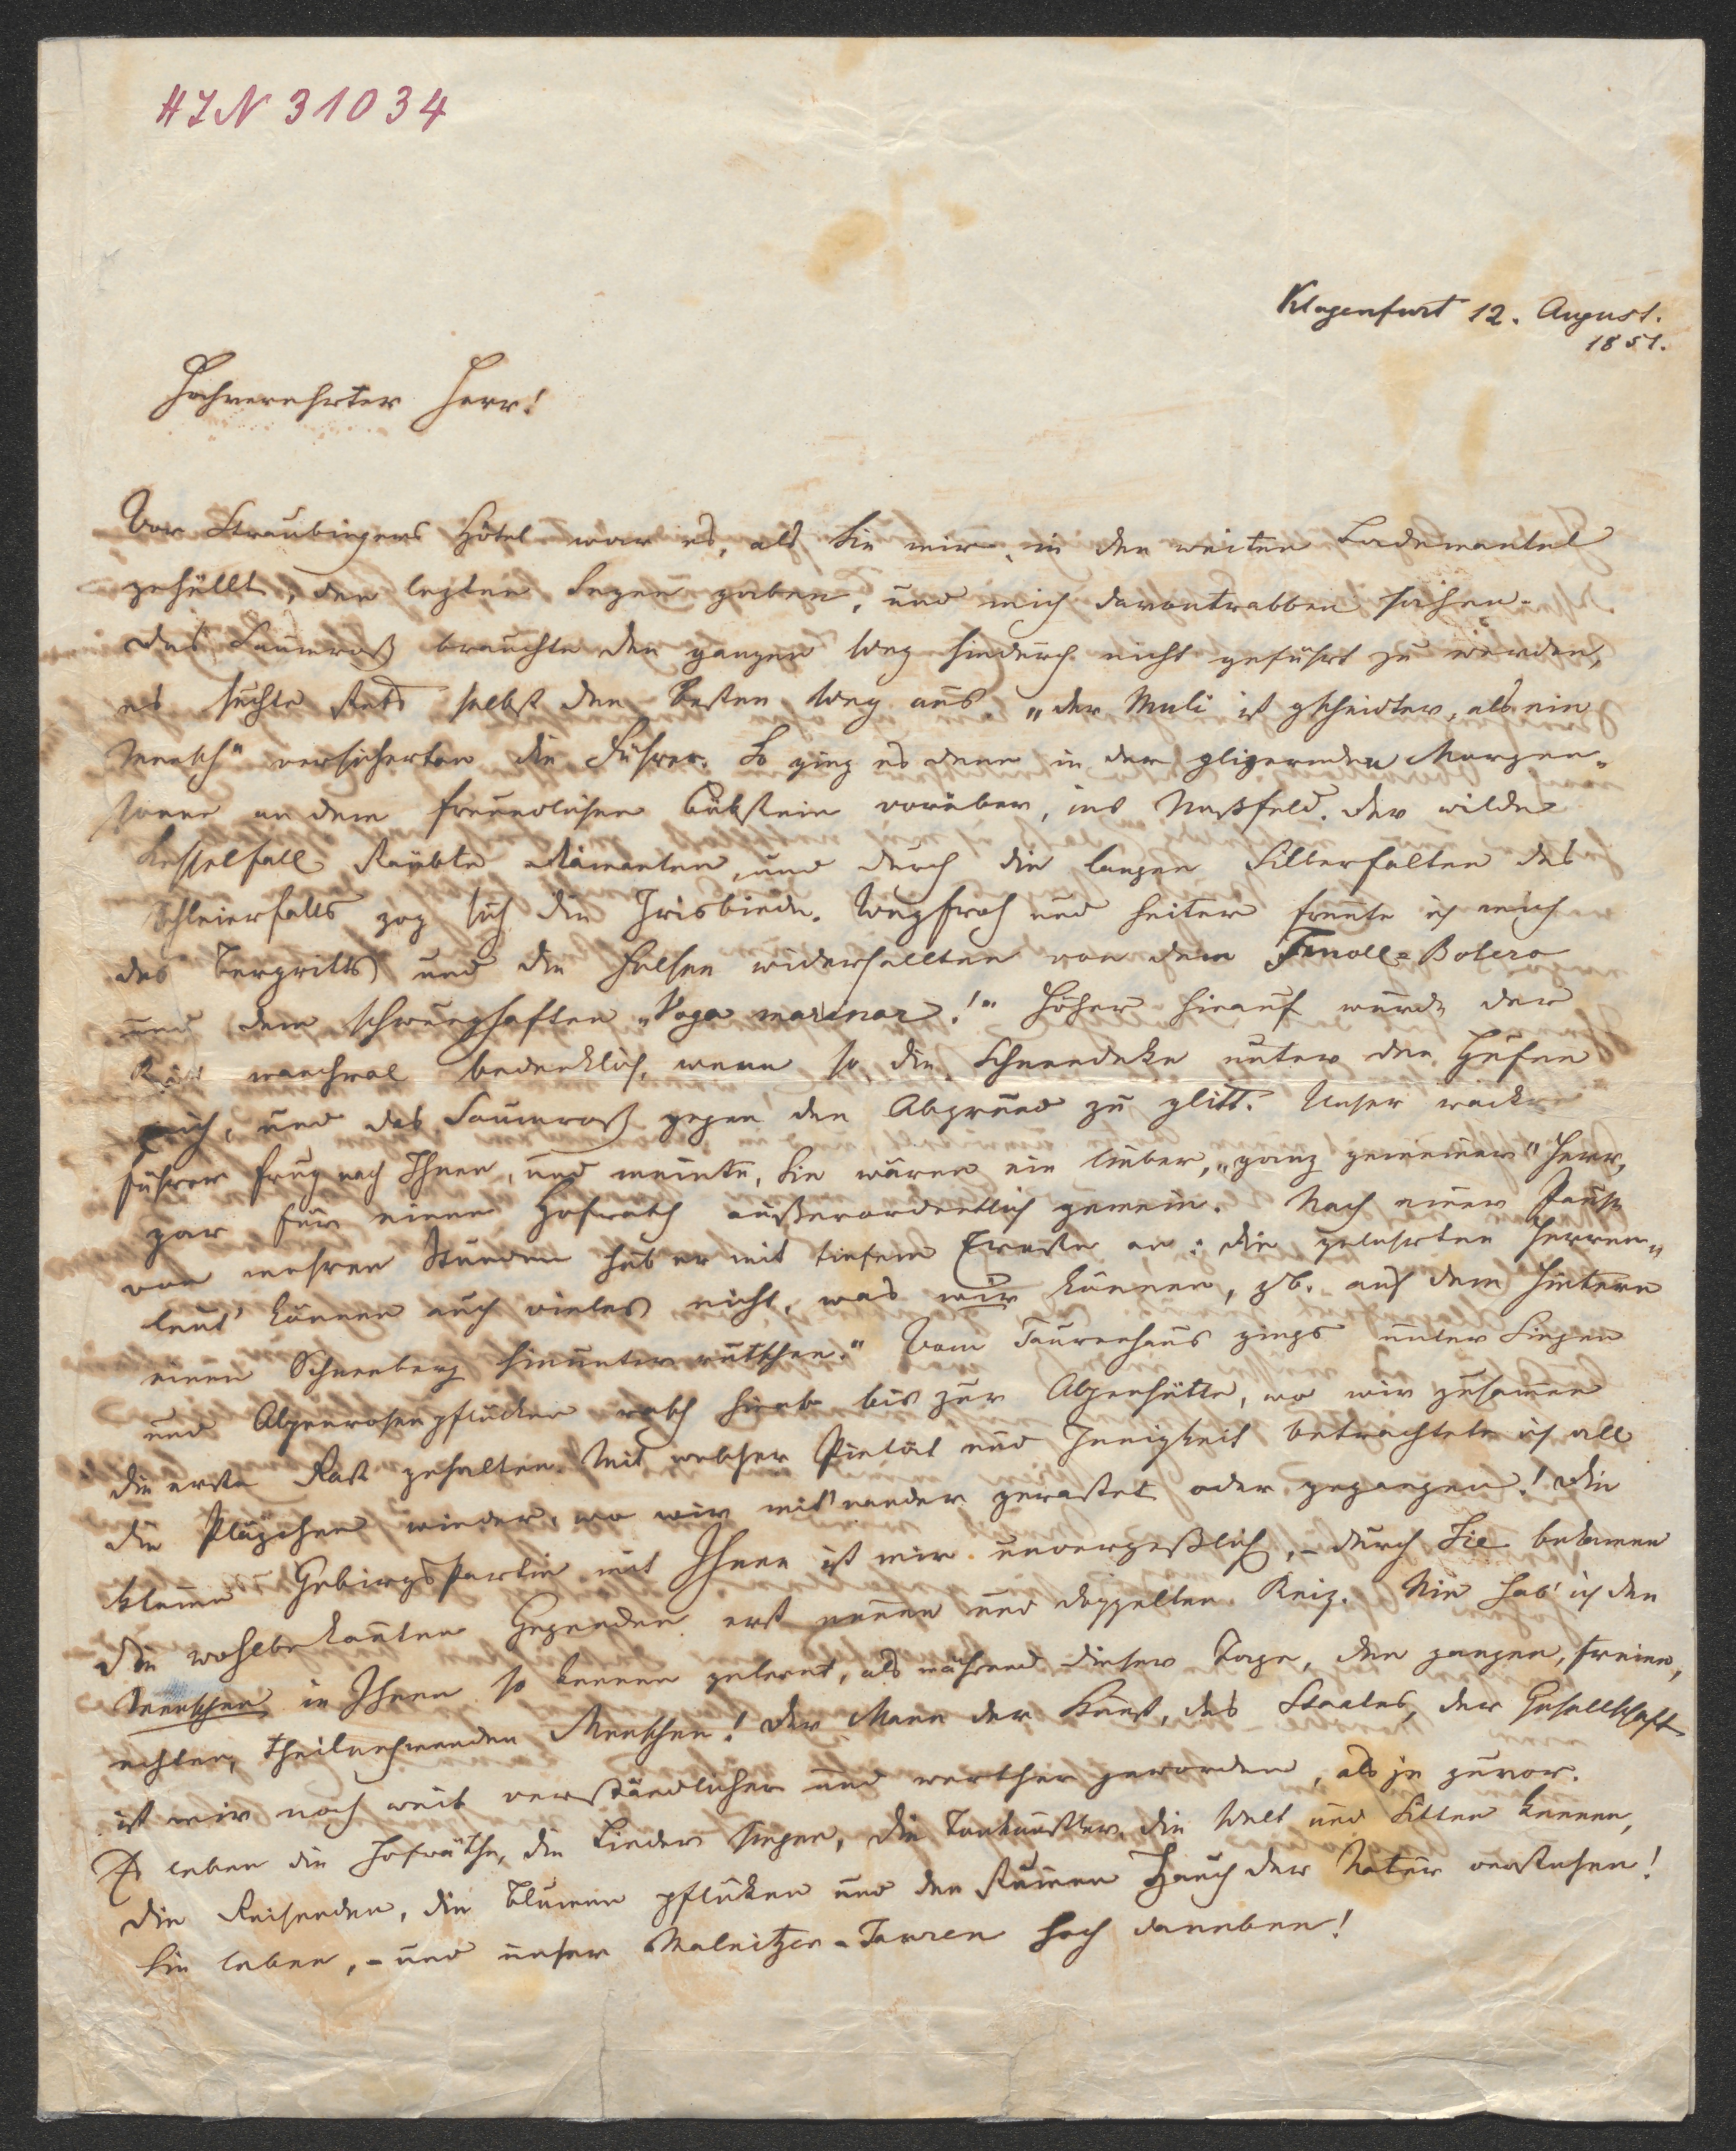 HIN 31034
Klagenfurt 12. August.
1851.
Hochverehrter Herr!
Vor Straubingers Hôtel war es, als Sie mir, in den weiten Bademantel
gehüllt, den lezten Segen gaben, und mich davontrabben sahen.
Das Saumroß brauchte den ganzen Weg hindurch nicht geführt zu werden,
es suchte stets selbst den besten Weg aus. „der Muli ist gscheidter, als ein
Mensch" versicherten die Führer. So ging es denn in der glizernden Morgen-
sonne an dem freundlichen Bökstein vorüber, ins Naßfeld. Der wilde
Kesselfall stäubte Diamanten, und durch die langen Silberfalten des
Schleierfalls zog sich die Irisbinde. Wegfroh und heiter freute ich mich
des Bergritts und die Felsen widerhallten von dem Fmoll-Bolero
und dem schwunghaften „Voga marinar!" Höher hinauf wurde der
Ritt manchmal bedenklich, wenn so die Schneedeke unter den Hufen
wich, und das Saumroß gegen den Abgrund zu glitt. Unser wackre
Führer frug nach Ihnen, und meinte, Sie wären ein lieber, „ganz gemeiner" Herr,
gar für einen Hofrath außerordentlich gemein. Nach einer Pause
von mehren Stunden hub er mit tiefem Ernste an: die gelehrten Herren-
leut' können auch vieles nicht, was wir können, zb. auf dem Hintern
einen Schneeberg hinunter rutschen." Vom Taurenhaus gings unter Singen
und Alpenrosenpflücken rasch hinab bis zur Alpenhütte, wo wir zusammen
die erste Rast gehalten. Mit welcher Pietät und Innigkeit betrachtete ich all
die Pläzchen wieder, wo wir mit'nander gerastet oder gegangen! Die
kleine Gebirgspartie mit Ihnen ist mir unvergeßlich, – durch Sie bekamen
die wohlbekannten Gegenden erst neuen und doppelten Reiz. Nie hab' ich den
Menschen in Ihnen so kennen gelernt, als während dieser Tage, den ganzen, freien,
echten, theilnehmenden Menschen! Der Mann der Kunst, des Staates, der Gesellschaft
ist mir noch weit verständlicher und werther geworden, als je zuvor.
Es leben die Hofräthe, die Lieder singen, die Tonkünstler, die Welt und Sitten kennen,
die Reisenden, die Blumen pflüken und den stummen Hauch der Natur verstehen!
Sie leben, – und unser Malnitzer-Tauren hoch daneben!